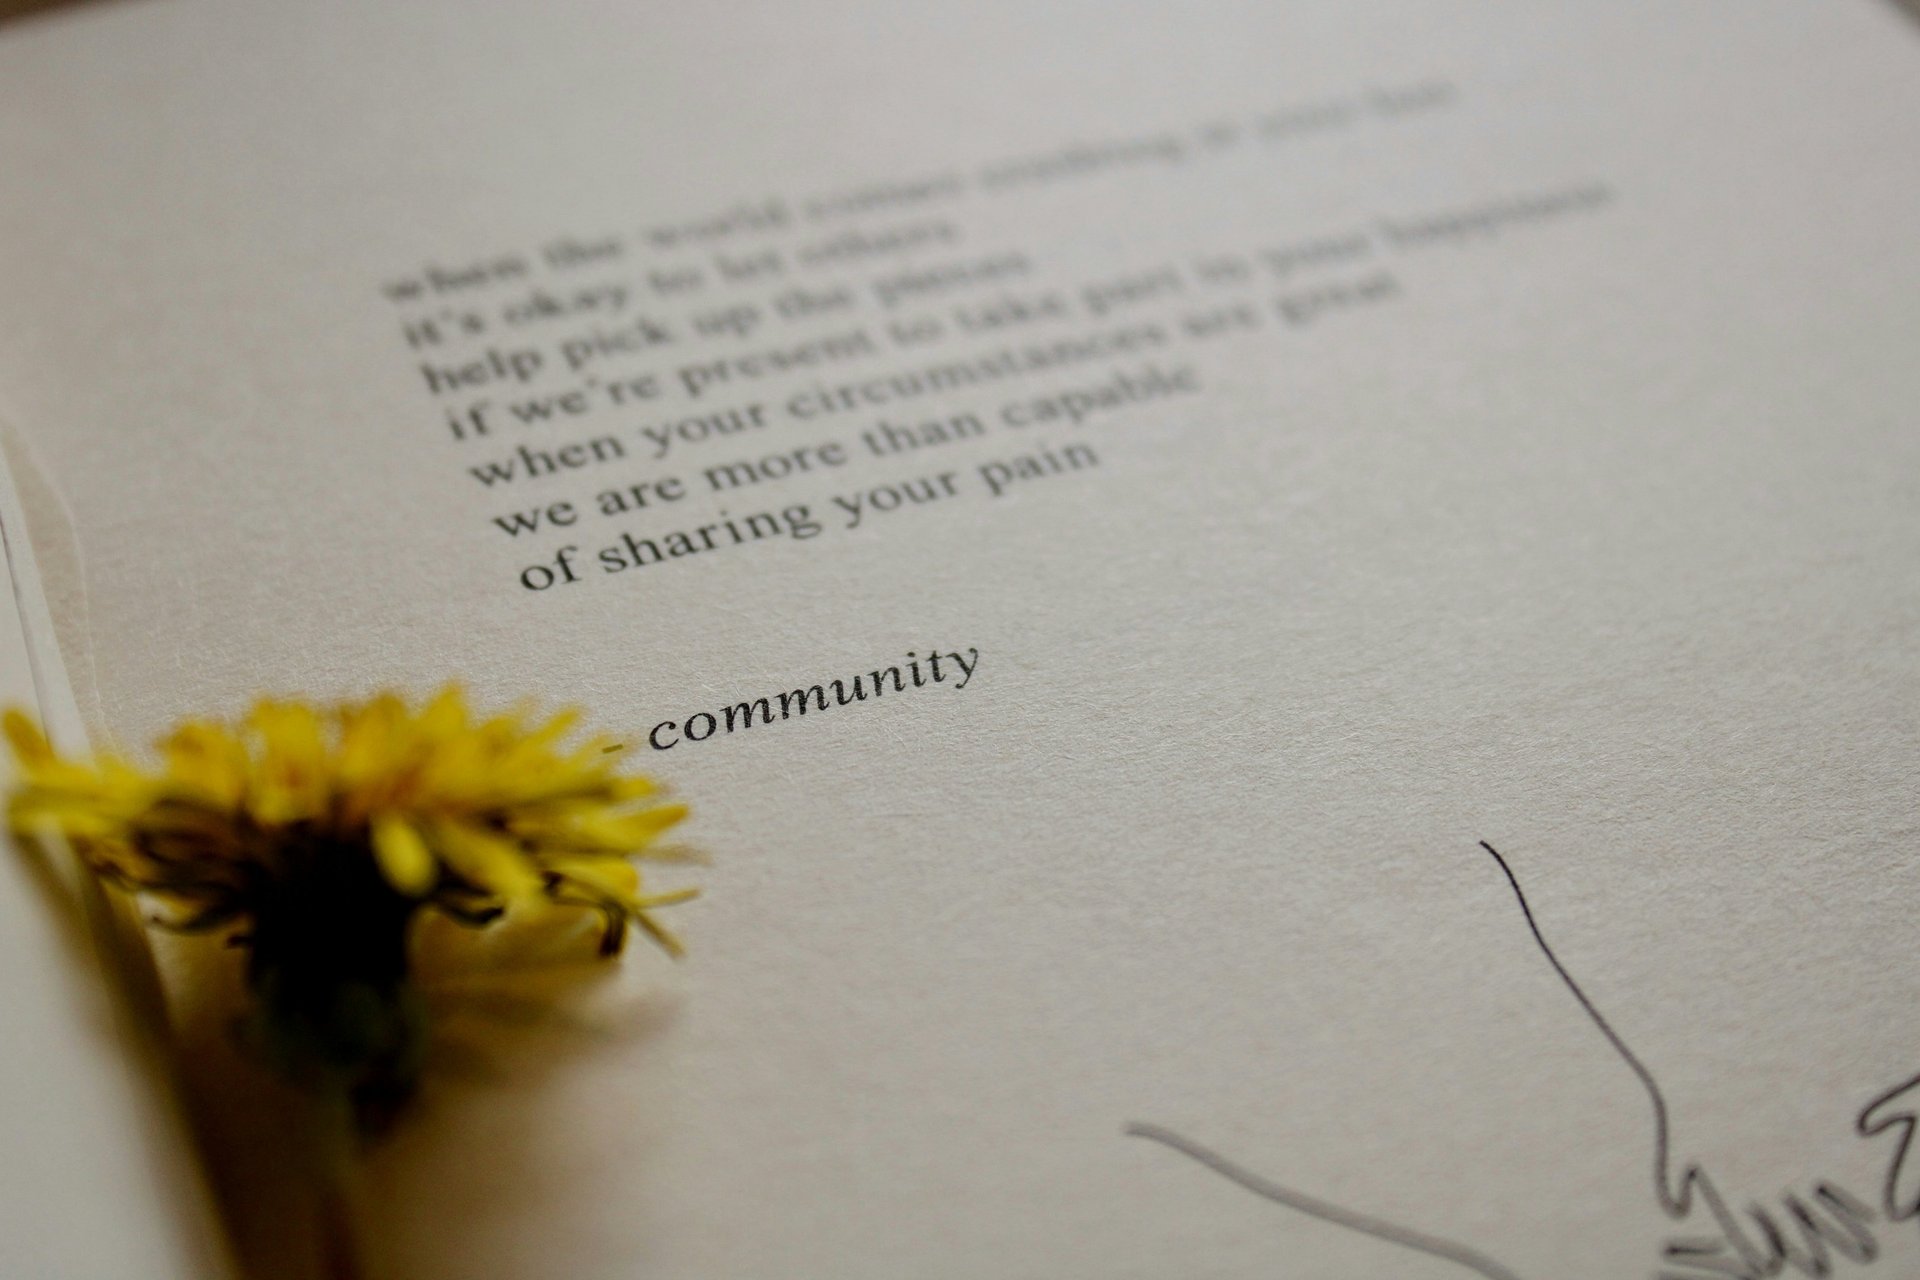 when the world comes crashing at your feet
it's okay to let others
help pick up the pieces
if we're present to take part in your happiness
when your circumstances are great
we are more than capable
of sharing your pain
- community